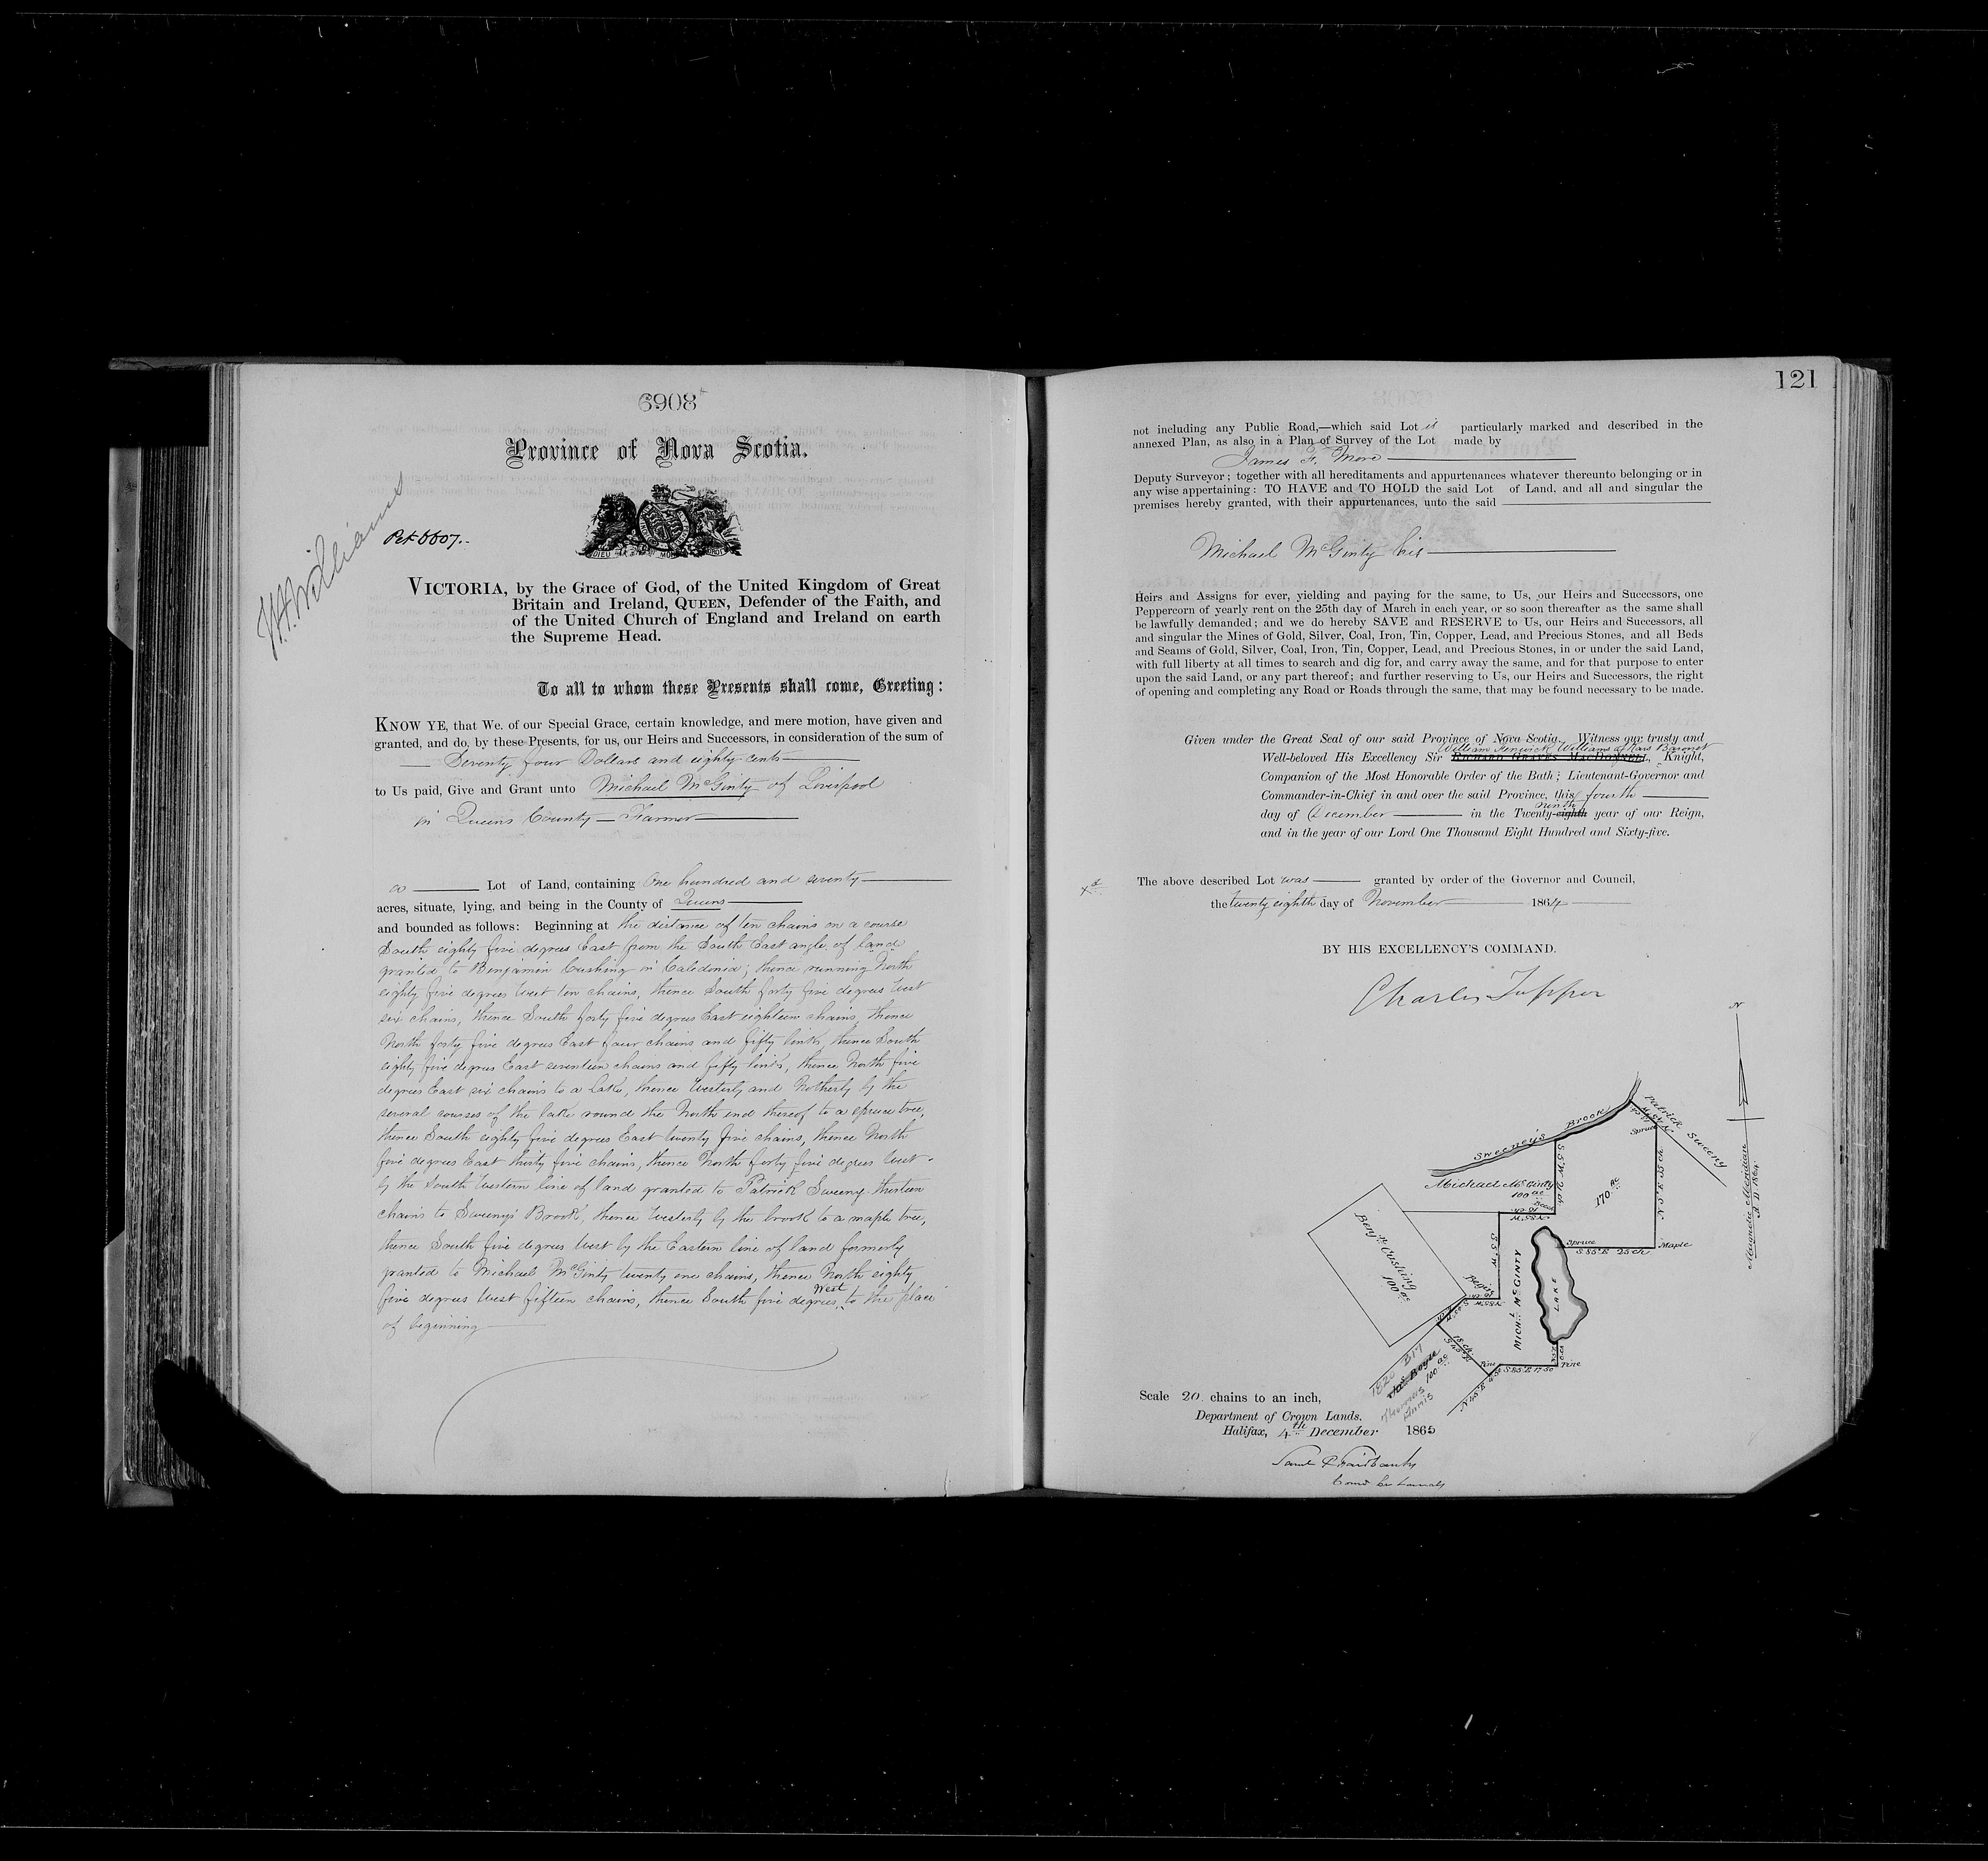 6908
Province of Nova Scotia.
W.F. Williams
Pet 6607.
DIEU ET MON DROIT
VICTORIA, by the Grace of God, of the United Kingdom of Great
Britain and Ireland, QUEEN, Defender of the Faith, and
of the United Church of England and Ireland on earth
the Supreme Head.
To all to whom these Presents shall come, Greeting:
KNOW YE, that We, of our Special Grace, certain knowledge, and mere motion, have given and
granted, and do, by these Presents, for us, our Heirs and Successors, in consideration of the sum of
Seventy four Dollars and eighty cents
to Us paid, Give and Grant unto Michael McGinty of Liverpool
in Queens County — Farmer
a Lot of Land, containing One hundred and seventy
acres, situate, lying, and being in the County of Queens
and bounded as follows: Beginning at the distance of ten chains on a course
South eighty five degrees East from the South East angle of land
granted to Benjamin Cushing in Caledonia; thence running North
eighty five degrees West ten chains, thence South forty five degrees West
six chains, thence South forty five degrees East eighteen chains, thence
North forty five degrees East four chains and fifty links, thence South
eighty five degrees East seventeen chains and fifty links, thence North five
degrees East six chains to a Lake, thence Westerly and Notherly by the
several courses of the lake round the North end thereof to a spruce tree,
thence South eighty five degrees East twenty five chains, thence North
five degrees East thirty five chains, thence North forty five degrees West
by the South Western line of land granted to Patrick Sweeny thirteen
chains to Sweeny's Brook, thence Westerly by the brook to a maple tree,
thence South five degrees West by the Eastern line of land formerly
granted to Michael McGinty twenty one chains, thence North eighty
five degrees West fifteen chains, thence South five degrees West to the place
of beginning
121
not including any Public Road,—which said Lot is particularly marked and described in the
annexed Plan, as also in a Plan of Survey of the Lot made by
James F. More
Deputy Surveyor; together with all hereditaments and appurtenances whatever thereunto belonging or in
any wise appertaining: TO HAVE and TO HOLD the said Lot of Land, and all and singular the
premises hereby granted, with their appurtenances, unto the said
Michael McGinty his
Heirs and Assigns for ever, yielding and paying for the same, to Us, our Heirs and Successors, one
Peppercorn of yearly rent on the 25th day of March in each year, or so soon thereafter as the same shall
be lawfully demanded; and we do hereby SAVE and RESERVE to Us, our Heirs and Successors, all
and singular the Mines of Gold, Silver, Coal, Iron, Tin, Copper, Lead, and Precious Stones, and all Beds
and Seams of Gold, Silver, Coal, Iron, Tin, Copper, Lead, and Precious Stones, in or under the said Land,
with full liberty at all times to search and dig for, and carry away the same, and for that purpose to enter
upon the said Land, or any part thereof; and further reserving to Us, our Heirs and Successors, the right
of opening and completing any Road or Roads through the same, that may be found necessary to be made.
Given under the Great Seal of our said Province of Nova Scotia. Witness our trusty and
William Fenwick Williams of Kars Baronet
Well-beloved His Excellency Sir RICHARD GRAVES MACDONNELL, Knight,
Companion of the Most Honorable Order of the Bath; Lieutenant-Governor and
Commander-in-Chief in and over the said Province, this fourth
ninth
day of December in the Twenty-eighth year of our Reign,
and in the year of our Lord One Thousand Eight Hundred and Sixty-five.
The above described Lot was granted by order of the Governor and Council,
the twenty eighth day of November 1864
BY HIS EXCELLENCY'S COMMAND.
Charles Tupper
N
Magnetic Meridian
A.D. 1864.
Sweeney's Brook
Patrick Sweeny
Spruce
Michael McGinty
100 ac
170 ac
N 5° E 35 ch
S 5° W
Benjn Cushing
100 ac
Spruce
S 85° E 25 ch
Maple
MICHL McGINTY
LAKE
Begin
18 ch
Pine
S 85° E 17.50
Pine
N 45° E 4.50
1820 B17
Boyle
100 ac
Thomas
Annis
Scale 20 chains to an inch,
Department of Crown Lands.
Halifax, 4th December 1865
Saml P Fairbanks
Comr Cr Lands